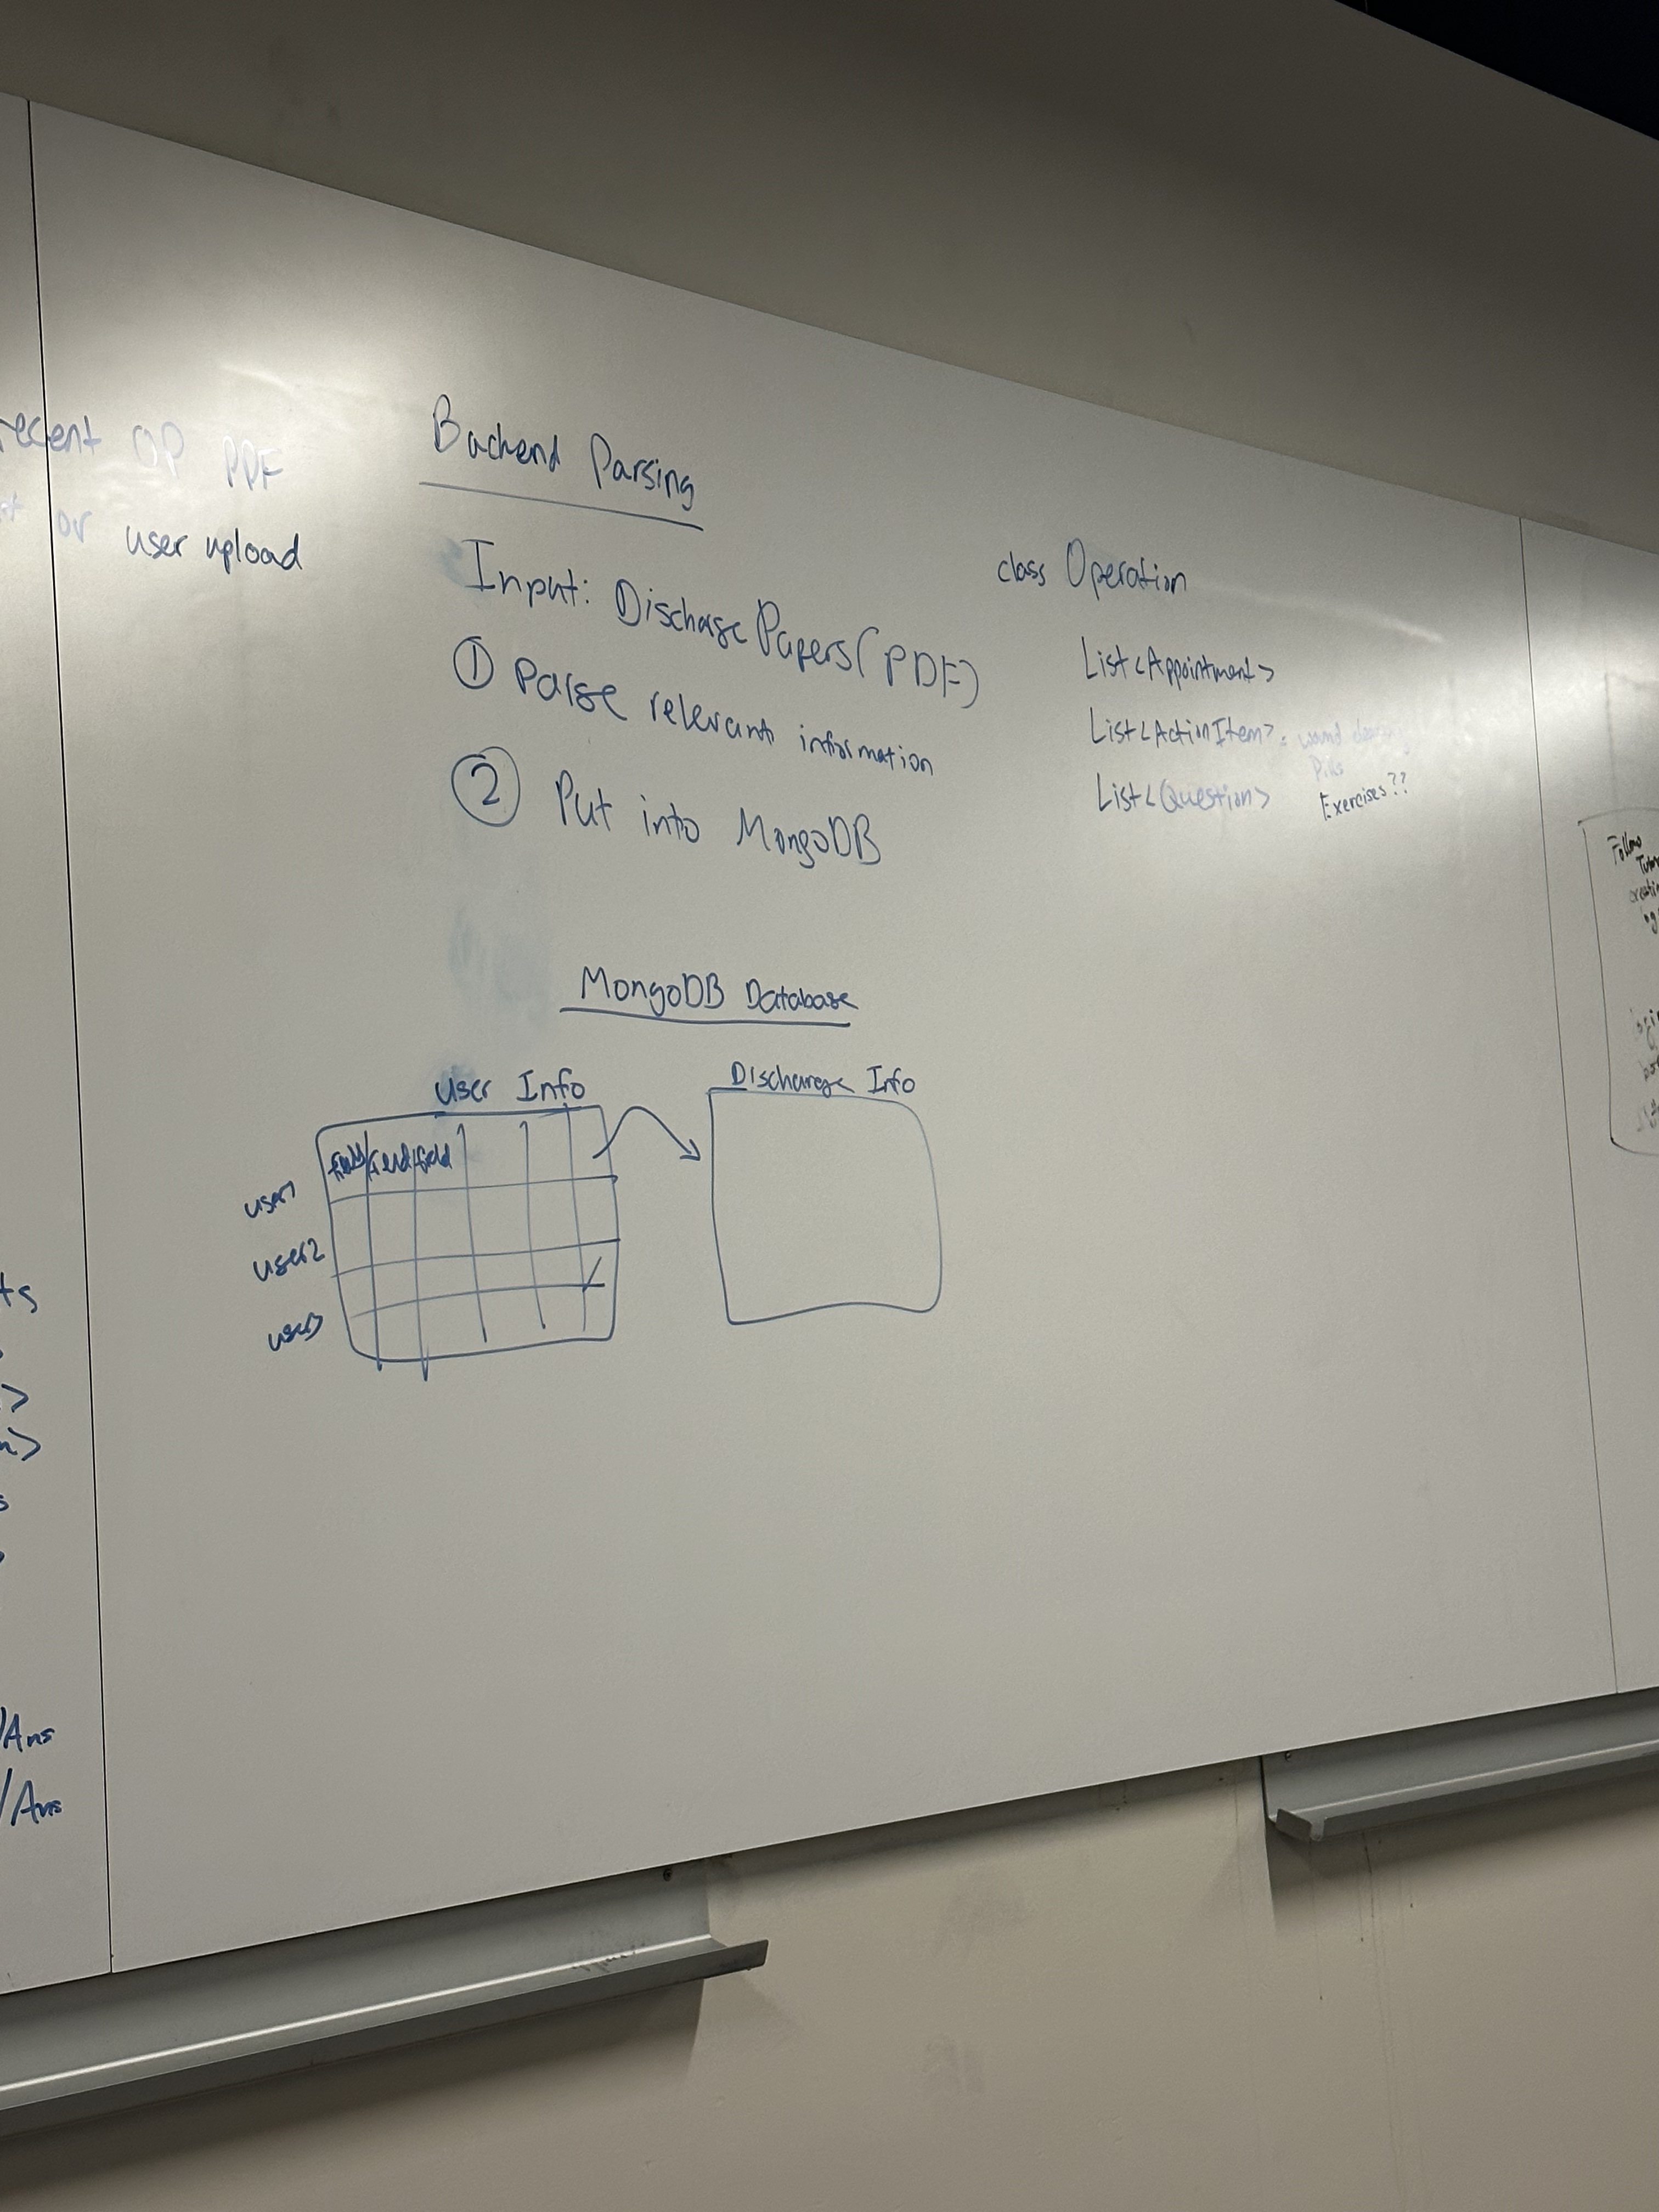 recent OP PDF
or user upload
Backend Parsing
Input: Discharge Papers (PDF)
① Parse relevant information
② Put into MongoDB
class Operation
List<Appointment>
List<ActionItem>: wound
Pills
List<Question> Exercises??
MongoDB Database
User Info
field field field
user1
user2
user3
Discharge Info
ts
>
>
s
/Ans
/Ans
Follow